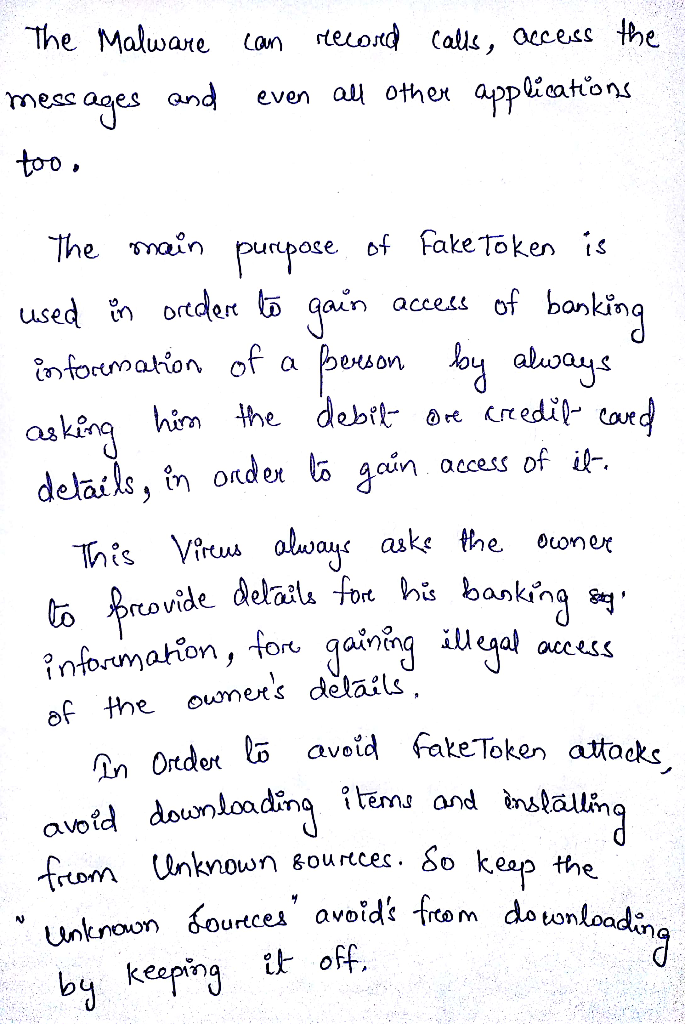 The Malware can record calls, access the
messages and even all other applications
too.
The main purpose of FakeToken is
used in order to gain access of banking
information of a person by always
asking him the debit or credit card
details, in order to gain access of it.
This Virus always asks the owner
to provide details for his banking
information, for gaining illegal access
of the owner's details.
In Order to avoid FakeToken attacks,
avoid downloading items and installing
from Unknown sources. So keep the
"Unknown Sources" avoid's from downloading
by keeping it off.